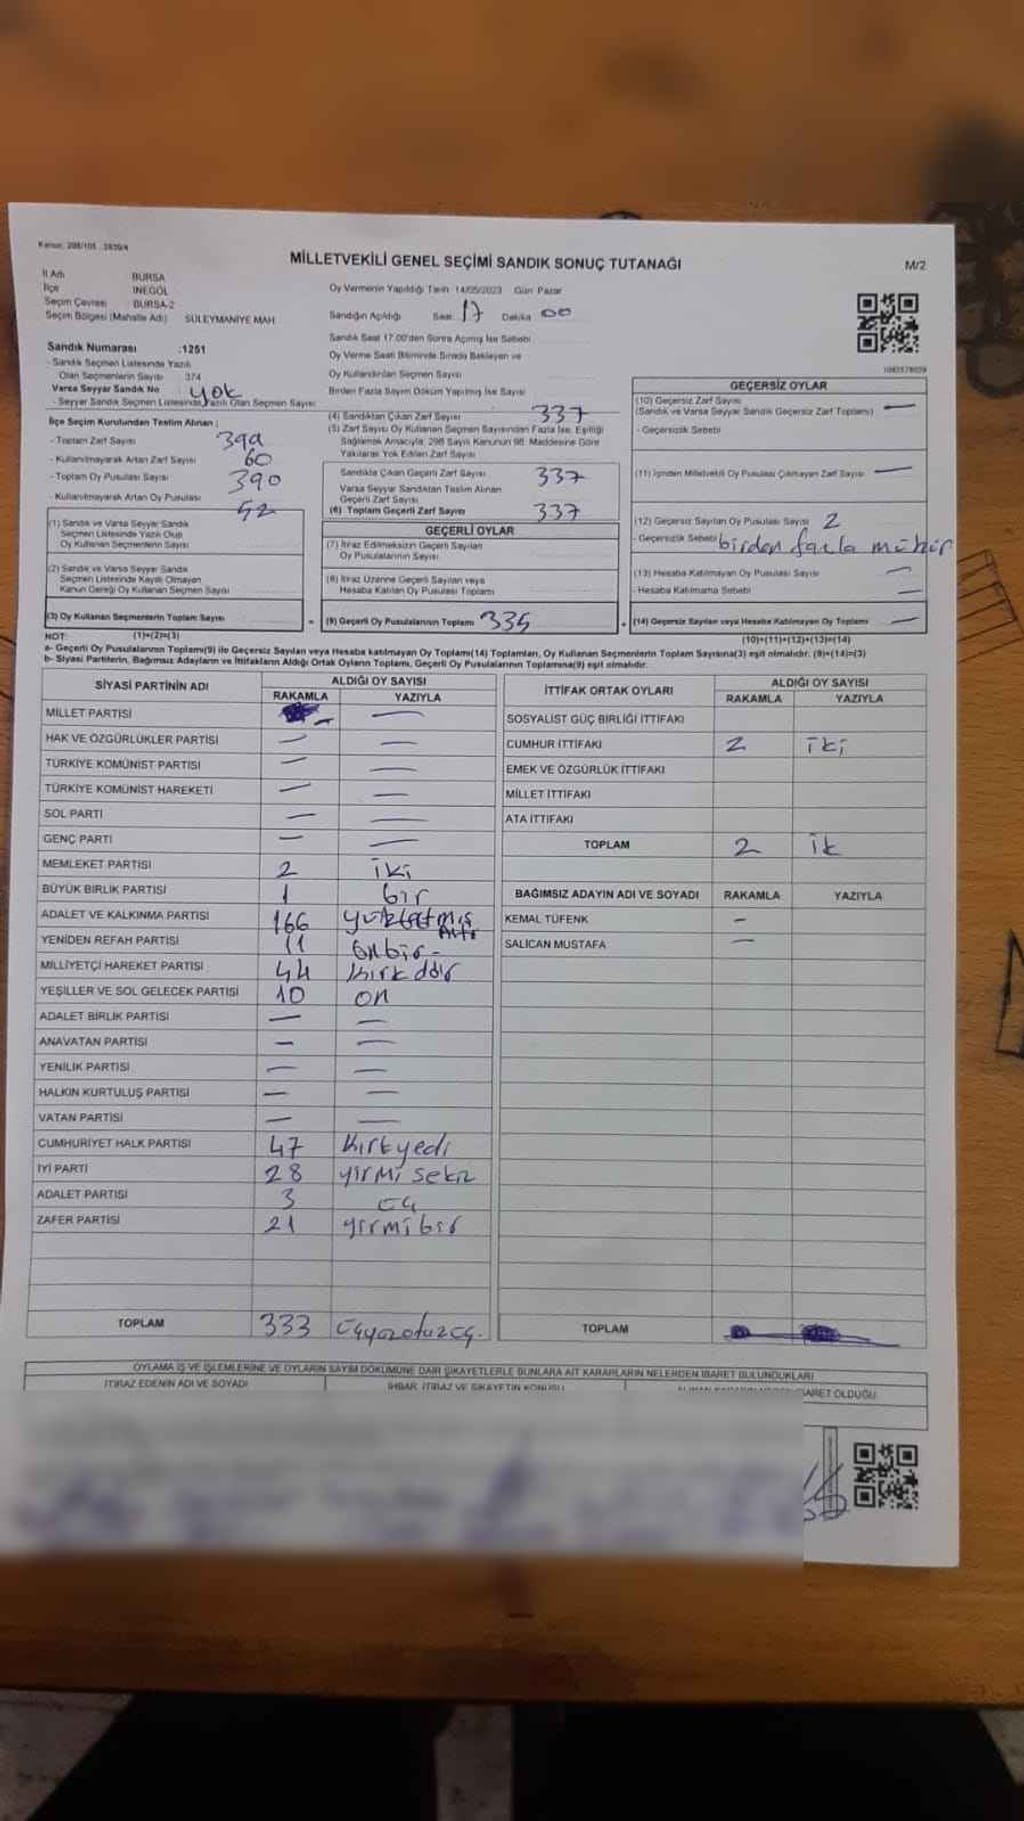 MİLLETVEKİLİ GENEL SEÇİMİ SANDIK SONUÇ TUTANAĞI
M/2
İl Adı BURSA
İlçe İNEGÖL
Seçim Çevresi BURSA-2
Seçim Bölgesi (Mahalle Adı) SÜLEYMANİYE MAH.
Oy Vermenin Yapıldığı Tarih 14/05/2023 Gün Pazar
Sandığın Açıldığı Saat 17 Dakika 00
Sandık Saat 17:00'den Sonra Açılmış İse Sebebi
Oy Verme Saati Bitiminde Sırada Bekleyen ve
Oy Kullandırılan Seçmen Sayısı
Birden Fazla Sayım Döküm Yapılmış İse Sayısı
Sandık Numarası :1251
- Sandık Seçmen Listesinde Yazılı
Olan Seçmenlerin Sayısı : 374
Varsa Seyyar Sandık No yok
- Seyyar Sandık Seçmen Listesinde Yazılı Olan Seçmen Sayısı
İlçe Seçim Kurulundan Teslim Alınan :
- Toplam Zarf Sayısı
- Kullanılmayarak Artan Zarf Sayısı 60
- Toplam Oy Pusulası Sayısı 390
- Kullanılmayarak Artan Oy Pusulası 52
(1) Sandık ve Varsa Seyyar Sandık
Seçmen Listesinde Yazılı Olup
Oy Kullanan Seçmenlerin Sayısı
(2) Sandık ve Varsa Seyyar Sandık
Seçmen Listesinde Kaydı Olmayan
Kanun Gereği Oy Kullanan Seçmen Sayısı
(3) Oy Kullanan Seçmenlerin Toplam Sayısı
(4) Sandıktan Çıkan Zarf Sayısı 337
(5) Zarf Sayısı Oy Kullanan Seçmen Sayısından Fazla İse, Eşitliği
Sağlamak Amacıyla, 298 Sayılı Kanunun 98. Maddesine Göre
Yakılarak Yok Edilen Zarf Sayısı
Sandıkta Çıkan Geçerli Zarf Sayısı 337
Varsa Seyyar Sandıktan Teslim Alınan
Geçerli Zarf Sayısı
(6) Toplam Geçerli Zarf Sayısı 337
GEÇERLİ OYLAR
(7) İtiraz Edilmeksizin Geçerli Sayılan
Oy Pusulalarının Sayısı
(8) İtiraz Üzerine Geçerli Sayılan veya
Hesaba Katılan Oy Pusulası Toplamı
= (9) Geçerli Oy Pusulalarının Toplamı 335 +
GEÇERSİZ OYLAR
(10) Geçersiz Zarf Sayısı —
(Sandık ve Varsa Seyyar Sandık Geçersiz Zarf Toplamı)
- Geçersizlik Sebebi
(11) İçinden Milletvekili Oy Pusulası Çıkmayan Zarf Sayısı —
(12) Geçersiz Sayılan Oy Pusulası Sayısı 2
- Geçersizlik Sebebi birden fazla mühür
(13) Hesaba Katılmayan Oy Pusulası Sayısı —
- Hesaba Katılmama Sebebi —
(14) Geçersiz Sayılan veya Hesaba Katılmayan Oy Toplamı —
NOT: (1)+(2)=(3) (10)+(11)+(12)+(13)=(14)
a- Geçerli Oy Pusulalarının Toplamı(9) ile Geçersiz Sayılan veya Hesaba katılmayan Oy Toplamı(14) Toplamları, Oy Kullanan Seçmenlerin Toplam Sayısına(3) eşit olmalıdır. (9)+(14)=(3)
b- Siyasi Partilerin, Bağımsız Adayların ve İttifakların Aldığı Ortak Oyların Toplamı, Geçerli Oy Pusulalarının Toplamına(9) eşit olmalıdır.
SİYASİ PARTİNİN ADI ALDIĞI OY SAYISI
RAKAMLA YAZIYLA
MİLLET PARTİSİ — —
HAK VE ÖZGÜRLÜKLER PARTİSİ — —
TÜRKİYE KOMÜNİST PARTİSİ — —
TÜRKİYE KOMÜNİST HAREKETİ — —
SOL PARTİ — —
GENÇ PARTİ — —
MEMLEKET PARTİSİ 2 iki
BÜYÜK BİRLİK PARTİSİ 1 bir
ADALET VE KALKINMA PARTİSİ 166
YENİDEN REFAH PARTİSİ 11 Onbir -
MİLLİYETÇİ HAREKET PARTİSİ 44
YEŞİLLER VE SOL GELECEK PARTİSİ 10 on
ADALET BİRLİK PARTİSİ — —
ANAVATAN PARTİSİ — —
YENİLİK PARTİSİ — —
HALKIN KURTULUŞ PARTİSİ — —
VATAN PARTİSİ — —
CUMHURİYET HALK PARTİSİ 47 kırkyedi
İYİ PARTİ 28 yirmi sekiz
ADALET PARTİSİ 3 üç
ZAFER PARTİSİ 21 yirmibir
TOPLAM 333 üçyüzotuzüç.
İTTİFAK ORTAK OYLARI ALDIĞI OY SAYISI
RAKAMLA YAZIYLA
SOSYALİST GÜÇ BİRLİĞİ İTTİFAKI
CUMHUR İTTİFAKI 2 iki
EMEK VE ÖZGÜRLÜK İTTİFAKI
MİLLET İTTİFAKI
ATA İTTİFAKI
TOPLAM 2 ik
BAĞIMSIZ ADAYIN ADI VE SOYADI RAKAMLA YAZIYLA
KEMAL TÜFENK —
SALİCAN MUSTAFA —
TOPLAM
OYLAMA İŞ VE İŞLEMLERİNE VE OYLARIN SAYIM DÖKÜMÜNE DAİR ŞİKAYETLERLE BUNLARA AİT KARARLARIN NELERDEN İBARET BULUNDUKLARI
İTİRAZ EDENİN ADI VE SOYADI İHBAR, İTİRAZ VE ŞİKAYETİN KONUSU İBARET OLDUĞU